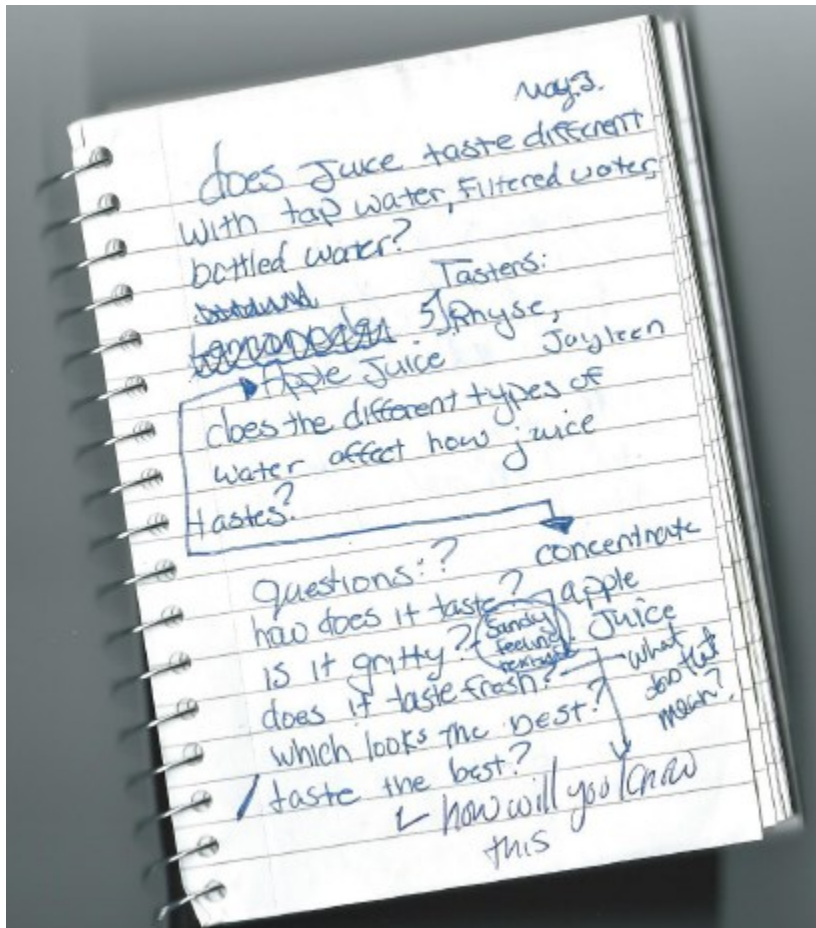 May. 3.
does Juice taste different
with tap water, Filtered water,
bottled water?
Tasters:
5, Rhyse,
Jayleen
Apple Juice
does the different types of
water affect how juice
tastes?
concentrate
apple
Juice
questions:?
how does it taste?
is it gritty?
Sandy
feeling
texture
does it taste fresh?
what
does that
mean?
which looks the best?
taste the best?
how will you know
this